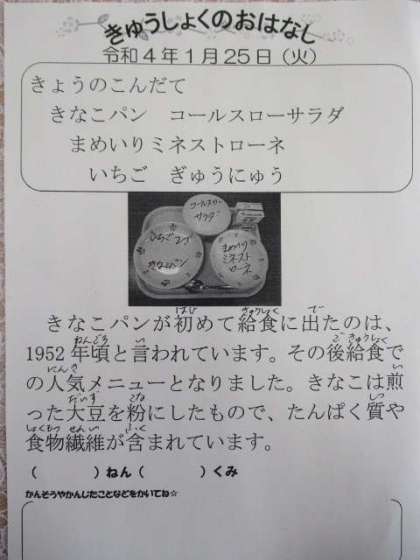 きゅうしょくのおはなし
令和4年1月25日（火）
きょうのこんだて
きなこパン　コールスローサラダ
まめいりミネストローネ
いちご　ぎゅうにゅう
コールスロー
サラダ
いちご2つ
きなこパン
まめいり
ミネスト
ローネ
きなこパンが初めて給食に出たのは、
1952年頃と言われています。その後給食で
の人気メニューとなりました。きなこは煎
った大豆を粉にしたもので、たんぱく質や
食物繊維が含まれています。
（　　　）ねん（　　　）くみ
かんそうやかんじたことなどをかいてね☆